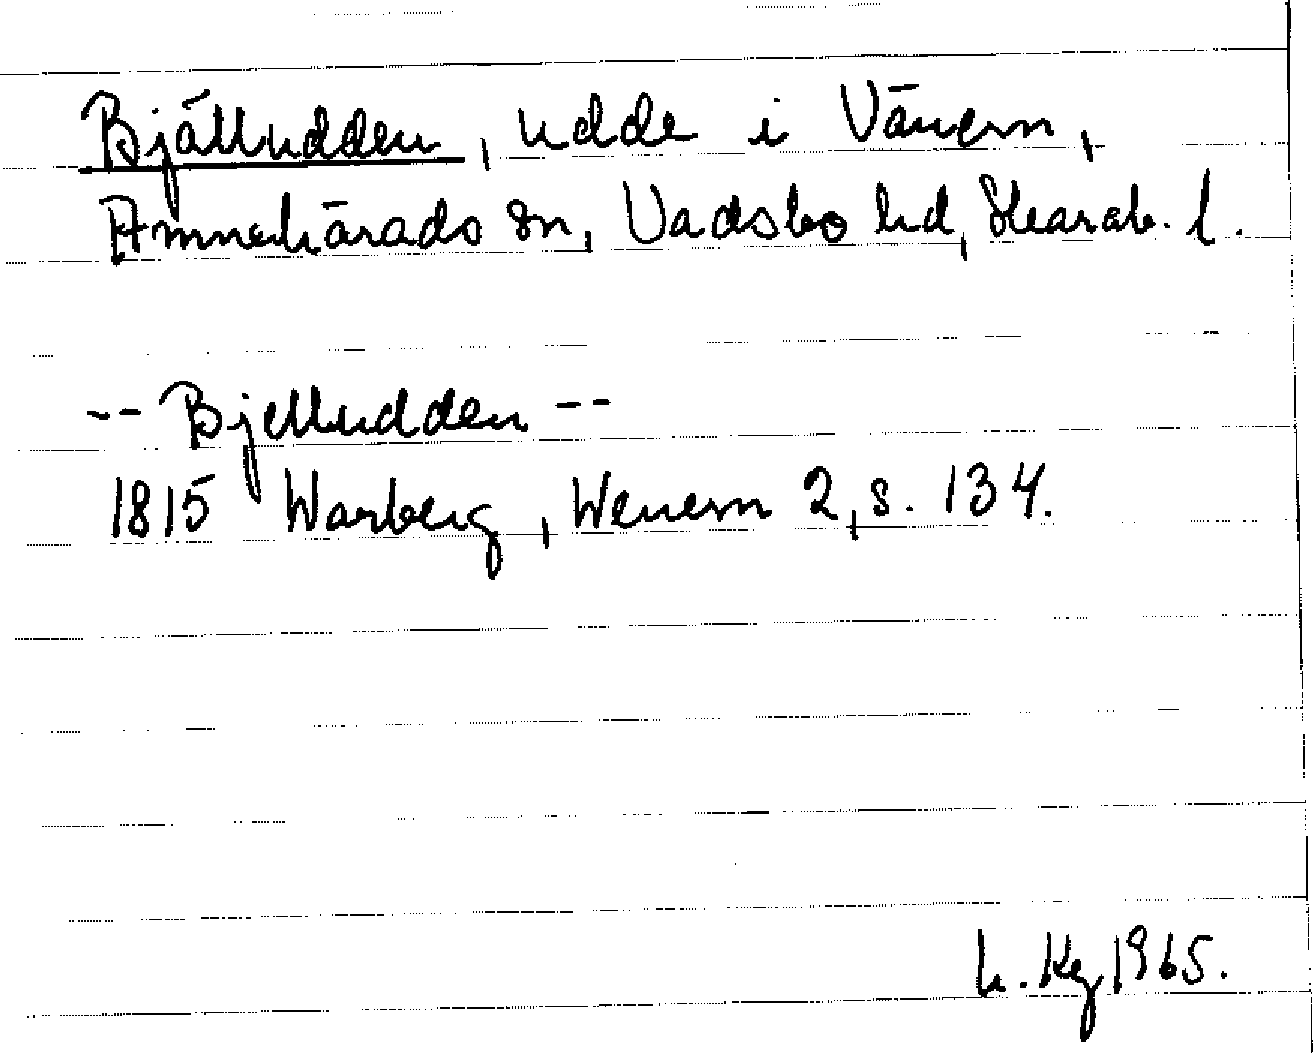 Bjälludden, udde i Vänern,
Amnehärads sn, Vadsbo hd, Skarab. l.
-- Bjelludden --
1815 Warberg, Wenern 2, s. 134.
h. Kg 1965.